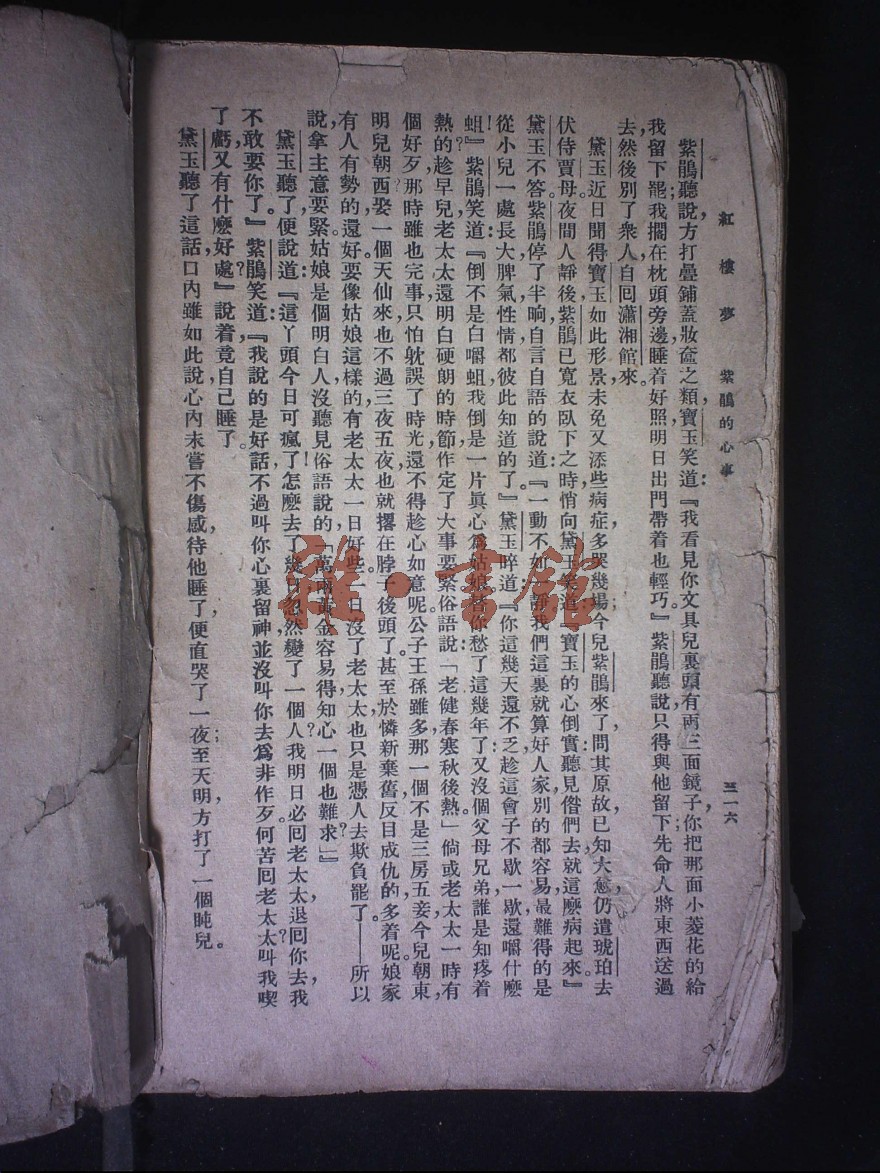 紅樓夢　紫鵑的心事　三一六
紫鵑聽說，方打疊鋪蓋妝奩之類。寶玉笑道：『我看見你文具兒裏頭有兩三面鏡子，你把那面小菱花的給
我留下罷；我擱在枕頭旁邊，睡着好照，明日出門帶着也輕巧。』紫鵑聽說，只得與他留下；先命人將東西送過
去，然後別了衆人，自回瀟湘館來。
黛玉近日聞得寶玉如此形景，未免又添些病症，多哭幾場。今兒紫鵑來了，問其原故，已知大愈，仍遣琥珀去
伏侍賈母。夜間人靜後，紫鵑已寬衣臥下之時，悄向黛玉笑道：『寶玉的心倒實，聽見偺們去，就這麽病起來。』
黛玉不答。紫鵑停了半晌，自言自語的說道：『一動不如一靜，我們這裏就算好人家，別的都容易，最難得的是
從小兒一處長大，脾氣性情都彼此知道的了。』黛玉啐道：『你這幾天還不乏，趁這會子不歇一歇，還嚼什麽
蛆！』紫鵑笑道：『倒不是白嚼蛆，我倒是一片眞心爲姑娘。替你愁了這幾年了，又沒個父母兄弟，誰是知疼着
熱的？趁早兒，老太太還明白硬朗的時節，作定了大事要緊。俗語說：「老健春寒秋後熱」，倘或老太太一時有
個好歹，那時雖也完事，只怕躭誤了時光，還不得趁心如意呢。公子王孫雖多，那一個不是三房五妾，今兒朝東，
明兒朝西？娶一個天仙來，也不過三夜五夜，也就撂在脖子後頭了。甚至於憐新棄舊，反目成仇的，多着呢。娘家
有人有勢的，還好；要像姑娘這樣的，有老太太一日，好些，一日沒了老太太，也只是憑人去欺負罷了。——所以
說，拿主意要緊。姑娘是個明白人，沒聽見俗語說的「萬兩黃金容易得，知心一個也難求？」』
黛玉聽了，便說道：『這丫頭今日可瘋了！怎麽去了幾日，忽然變了一個人？我明日必回老太太，退回你去，我
不敢要你了。』紫鵑笑道：『我說的是好話，不過叫你心裏留神，並沒叫你去爲非作歹。何苦回老太太，叫我喫
了虧，又有什麽好處？』說着，竟自己睡了。
黛玉聽了這話，口內雖如此說，心內未嘗不傷感；待他睡了，便直哭了一夜，至天明，方打了一個盹兒。
雅·書館